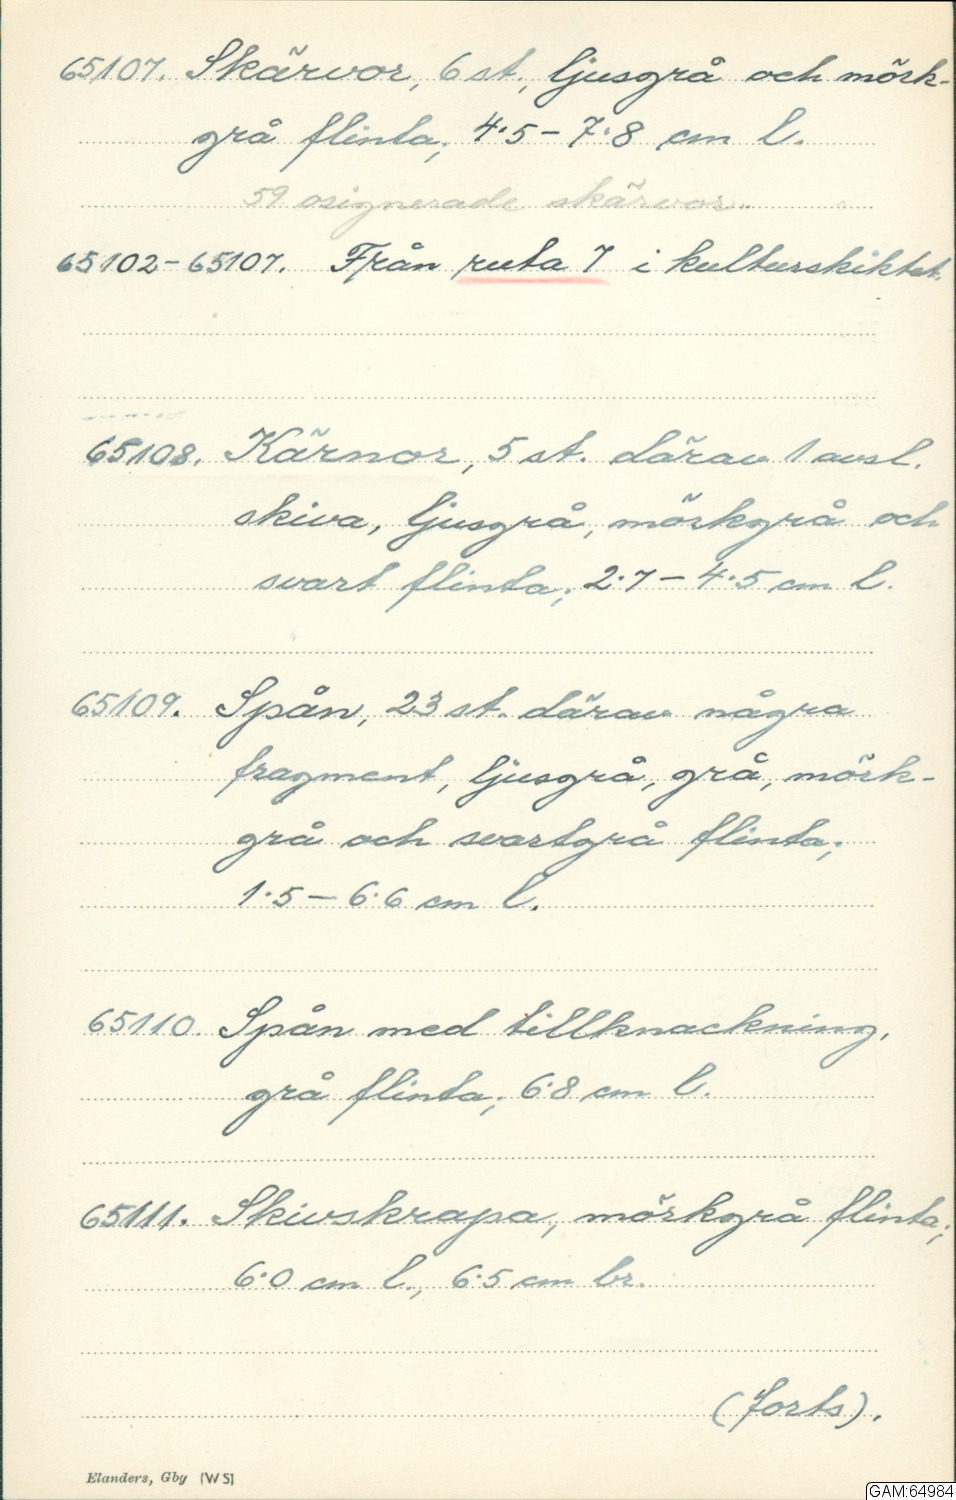 65107. Skärvor, 6 st., ljusgrå och mörk-
grå flinta; 4.5 – 7.8 cm l.
59 osignerade skärvor.
65102 – 65107. Från ruta 7 i kulturskiktet.
65108. Kärnor, 5 st. därav 1 avsl.
skiva, ljusgrå, mörkgrå och
svart flinta; 2.7 – 4.5 cm l.
65109. Spån, 23 st. därav några
fragment, ljusgrå, grå, mörk-
grå och svartgrå flinta;
1.5 – 6.6 cm l.
65110. Spån med tillknackning,
grå flinta; 6.8 cm l.
65111. Skivskrapa, mörkgrå flinta;
6.0 cm l., 6.5 cm br.
(forts).
Elanders, Gby (W 5)
GAM:64984